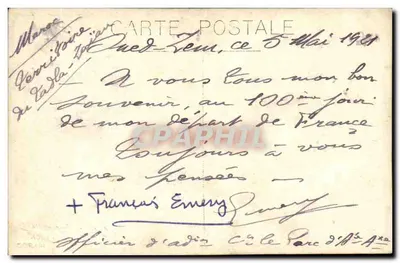 CARTE POSTALE
Maroc
Territoire
du Tadla
Oued-Zem, ce 5 Mai 1921
A vous tous mon bon
souvenir, au 100ème jour
de mon départ de France
Toujours à vous
mes pensées —
+ François Emery Emery
officier d'adon Cie le Parc d'Art
CPARHPIL